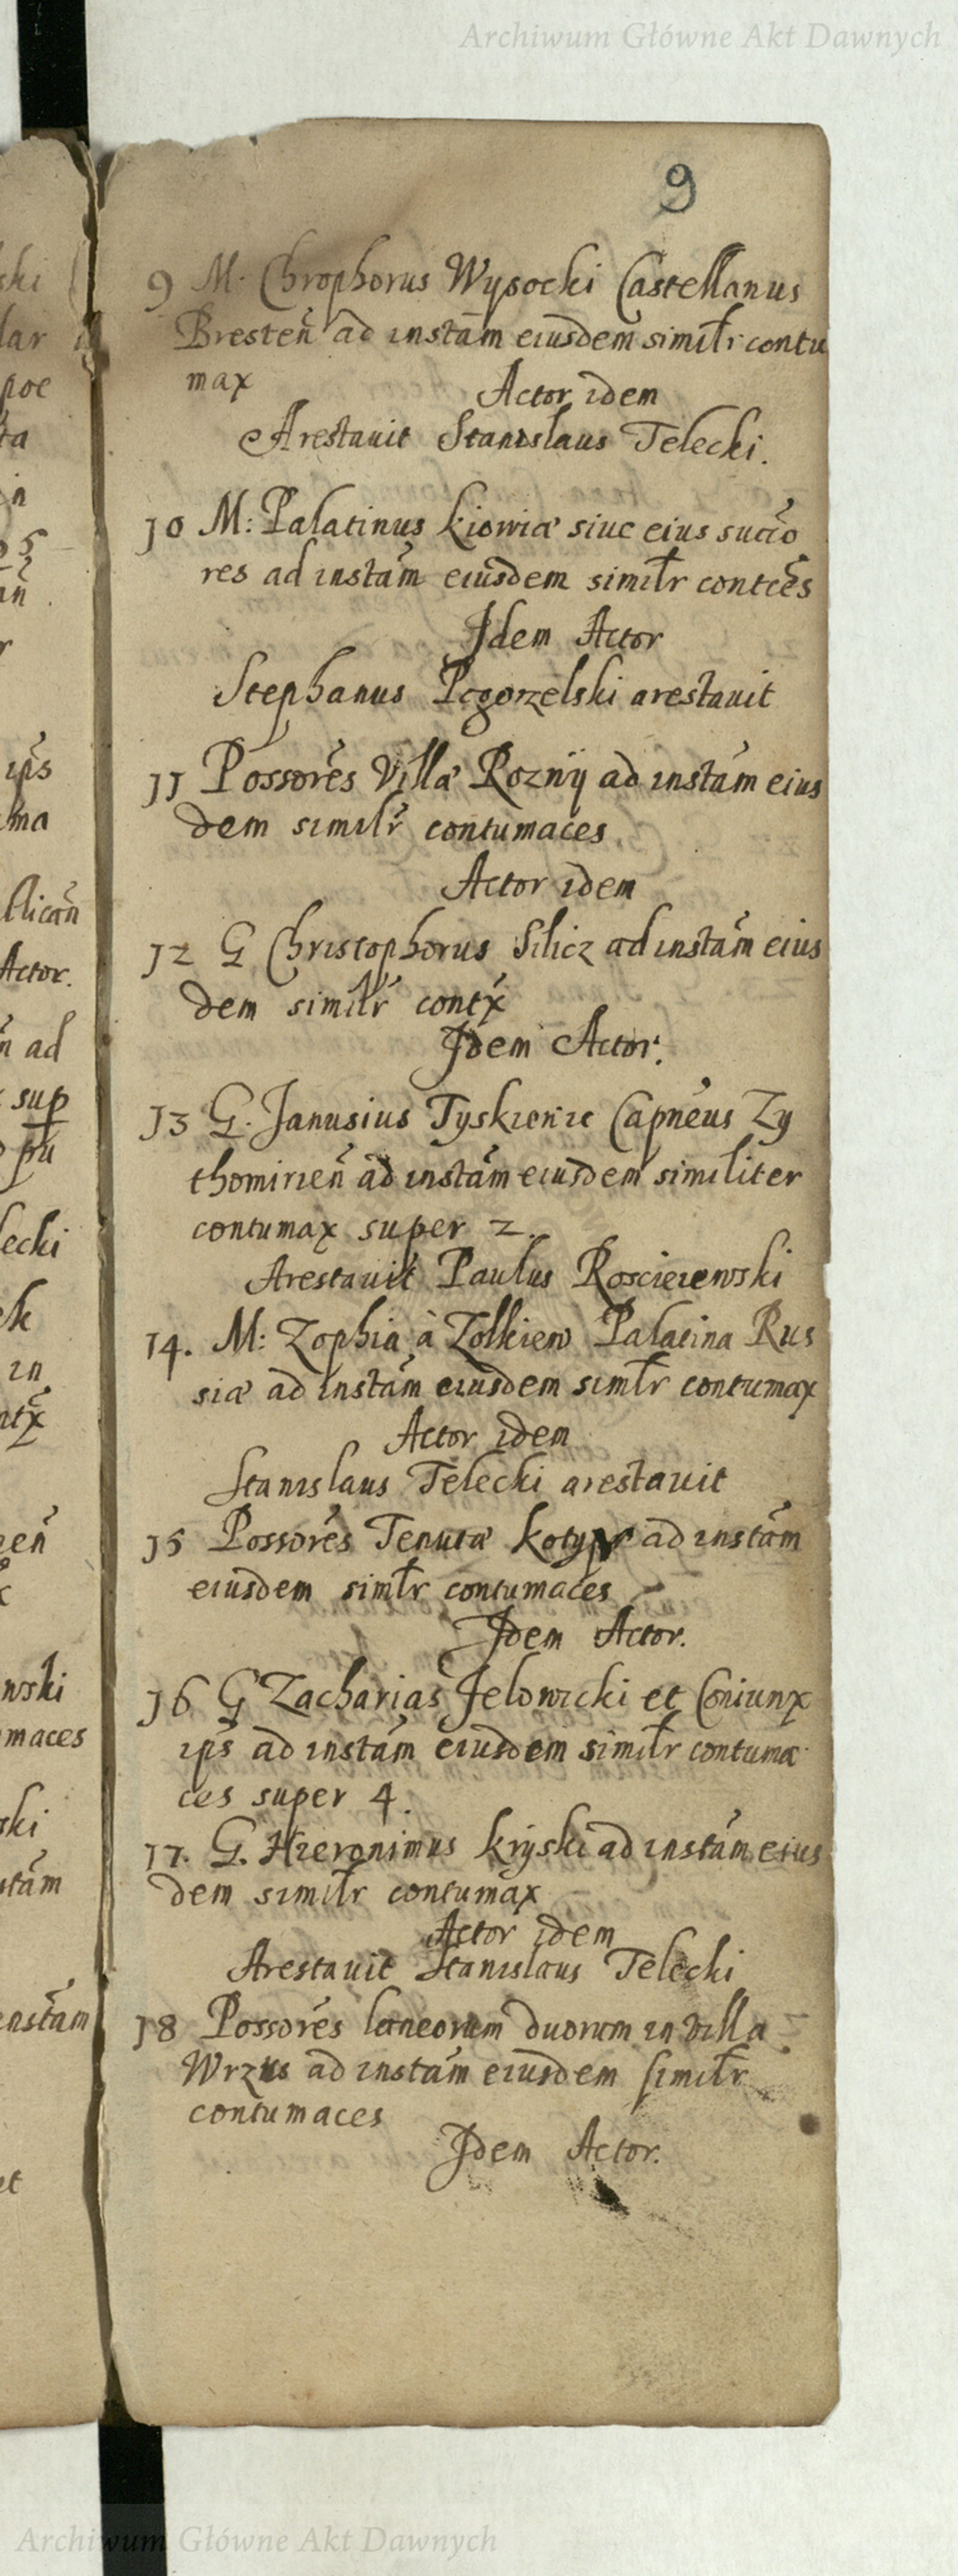 Archiwum Główne Akt Dawnych
9
9 M. Chrophorus Wysocki Castellanus
Bresteñ ad instãm eiusdem similr contu
max
Actor idem
Arestauit Stanislaus Telecki.
10 M: Palatinus kiowiæ siue eius sucĩo
res ad instãm eiusdem similr contces
Idem Actor
Stephanus Pogorzelski arestauit
11 Possores Villæ Roznÿ ad instãm eius
dem similr contumaces
Actor idem
12 G Christophorus Silicz ad instãm eius
dem similr contx
Idem Actor.
13 G. Janusius Tyskienic Capneus Zy
thomirieñ ad instãm eiusdem similiter
contumax super 2.
Arestauit Paulus Roscierewski
14. M: Zophia à Zolkiew Palatina Rus
siæ ad instãm eiusdem simlr contumax
Actor idem
Stanislaus Telecki arestauit
15 Possores Tenutæ ad instãm
eiusdem simlr contumaces
Idem Actor.
16 G Zacharias Jelowicki et Coniunx
ips ad instãm eiusdem similr contuma
ces super 4.
17. G. Hieronimus krÿski ad instãm eius
dem similr contumax
Actor idem
Arestauit Stanislaus Telecki
18 Possores laneorum duorum in villa
Wrzus ad instãm eiusdem similr
contumaces
Idem Actor.
Archiwum Główne Akt Dawnych